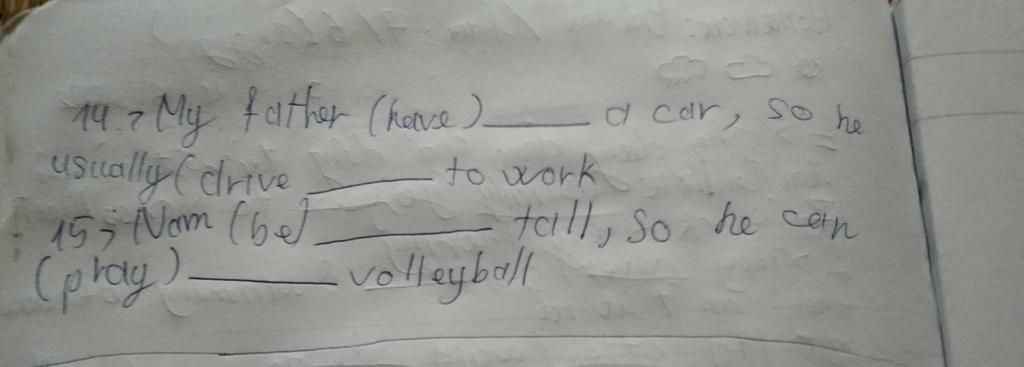 14> My father (have) ______ a car, so he
usually (drive ______ to work
15> Nam (be) ______ tall, so he can
(play) ______ volleyball